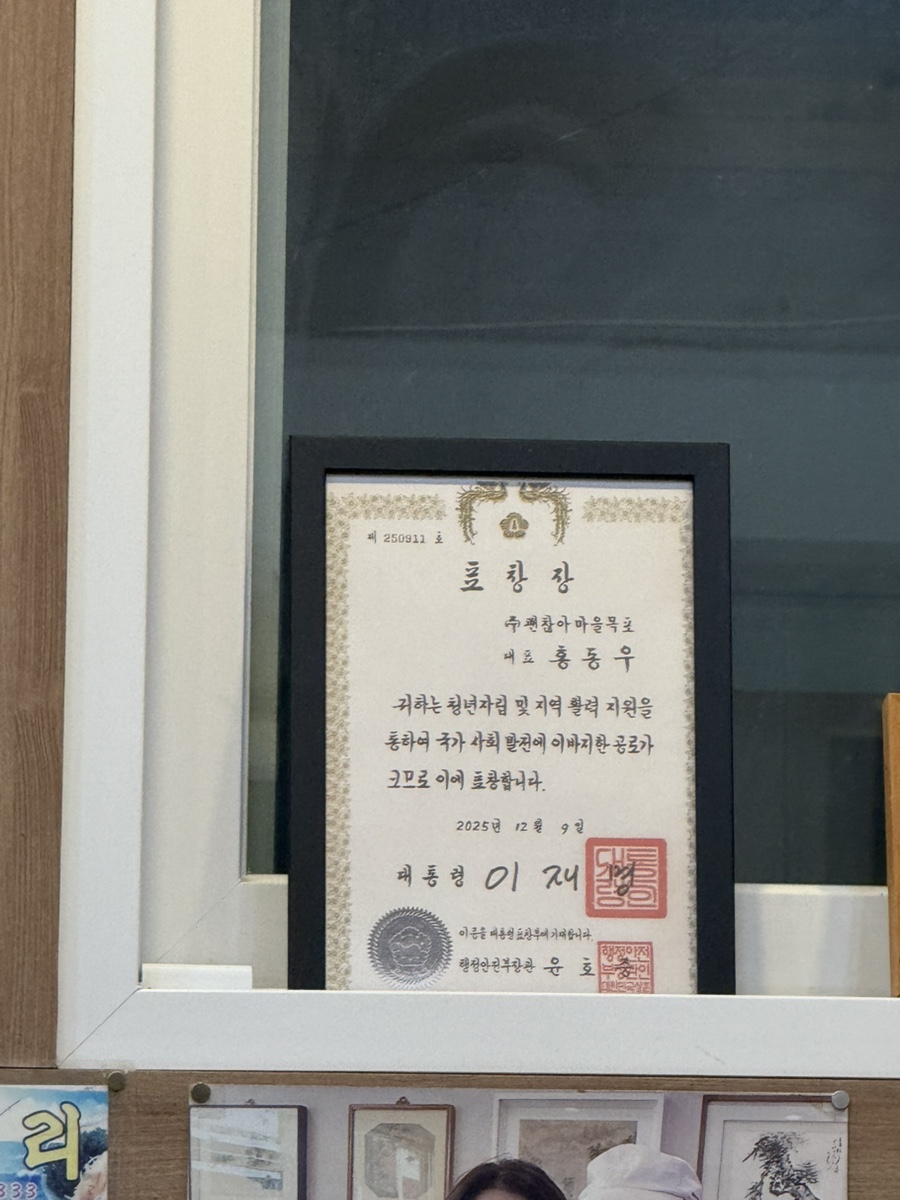 제 250911 호
표 창 장
㈜괜찮아마을목포
대표 홍동우
귀하는 청년자립 및 지역 활력 지원을
통하여 국가 사회 발전에 이바지한 공로가
크므로 이에 표창합니다.
2025년 12월 9일
대통령 이재명
대통령의인
이 증을 대통령표창부에 기재합니다.
행정안전부장관 윤호중
행정안전
부장관인
리
333